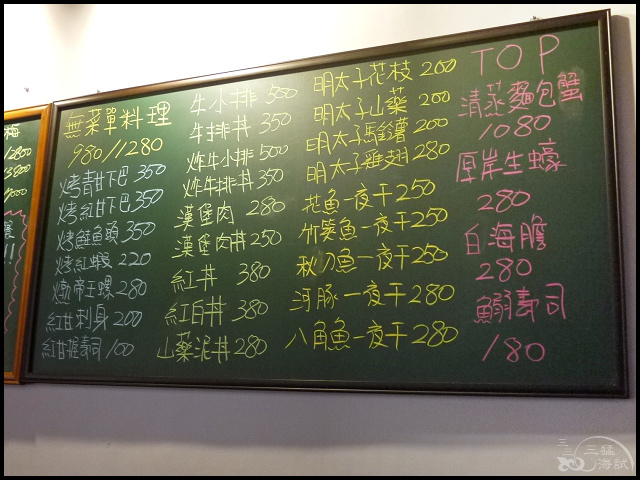 梅
無菜單料理
980/1280
烤青甘下巴 350
烤紅甘下巴 350
烤鮭魚頭 350
烤紅蝦 220
燉帝王螺 280
紅甘刺身 200
紅甘握壽司 100
牛小排 500
牛排丼 350
炸牛小排 500
炸牛排丼 350
漢堡肉 280
漢堡肉丼 250
紅丼 380
紅白丼 380
山藥泥丼 280
明太子花枝 200
明太子山藥 200
明太子馬鈴薯 200
明太子雞翅 280
花魚一夜干 250
竹筴魚一夜干 250
秋刀魚一夜干 250
河豚一夜干 280
八角魚一夜干 280
TOP
清蒸麵包蟹
1080
厚岸生蠔
280
白海膽
280
鰯壽司
180
三猛
海試